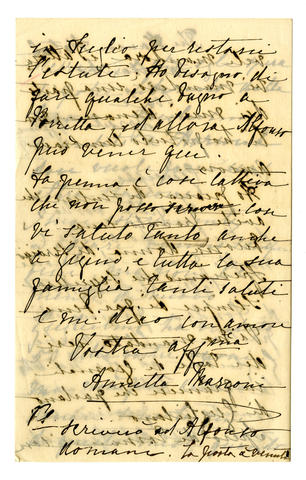 in Luglio per restarvi
l'estate; Ho bisogno di
fare qualche bagno a
Porretta, ed allora Alfonso
può venir qui.
La penna è così cattiva
che non posso scrivere con
vi saluto tanto anche
e Gigino, e tutta la sua
famiglia. Tanti saluti
e mi dico con amore
Vostra affma
Annetta Marconi
Ps
scrivirò ad Alfonso
domani. La posta è venuta